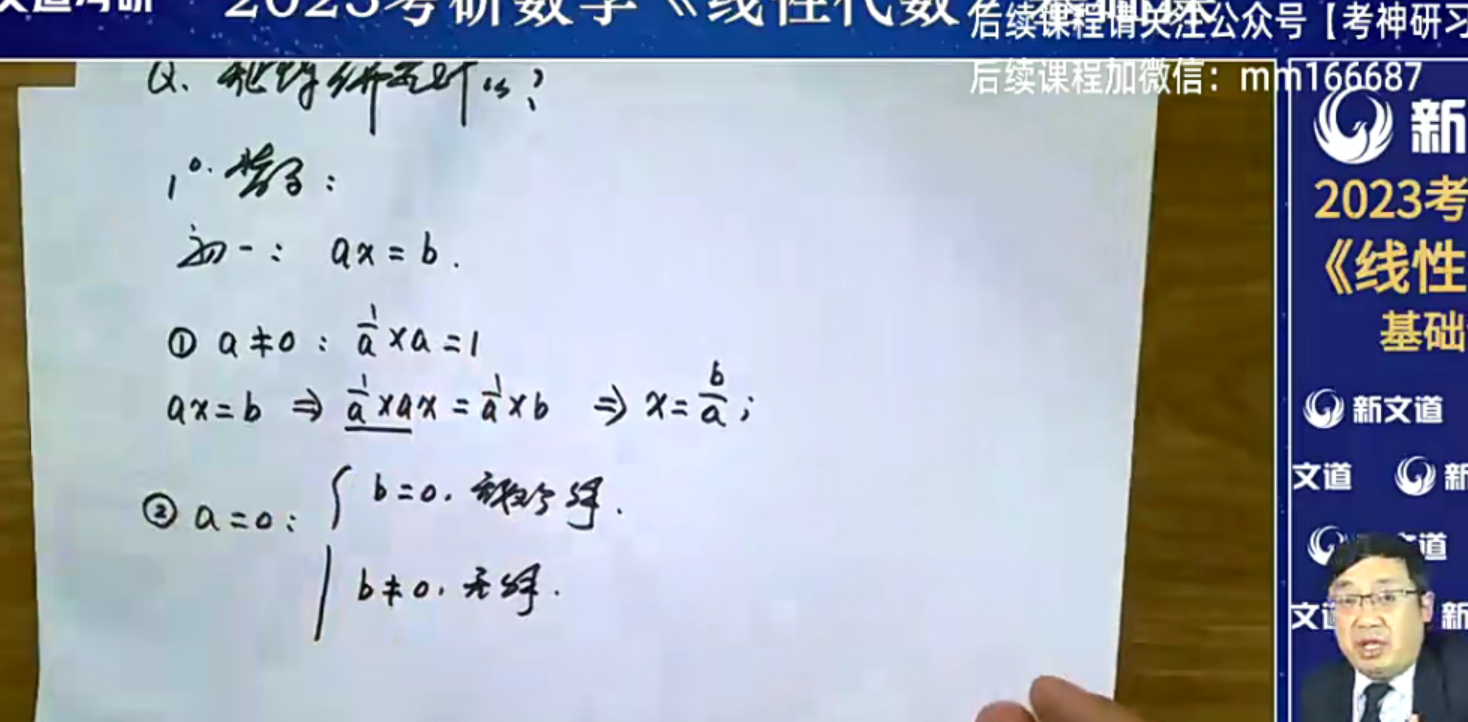 2023考研数学《线性代数
后续课程请关注公众号【考神研习
后续课程加微信：mm166687
Q.
1°. 数学：
初一： ax = b .
① a ≠ 0 : 1/a × a = 1
ax = b ⇒ 1/a × ax = 1/a × b ⇒ x = b/a ;
② a = 0 : { b = 0. 无数个解.
b ≠ 0. 无解.
新
2023考
《线性
基础
新文道
文道 新
道
文道 新